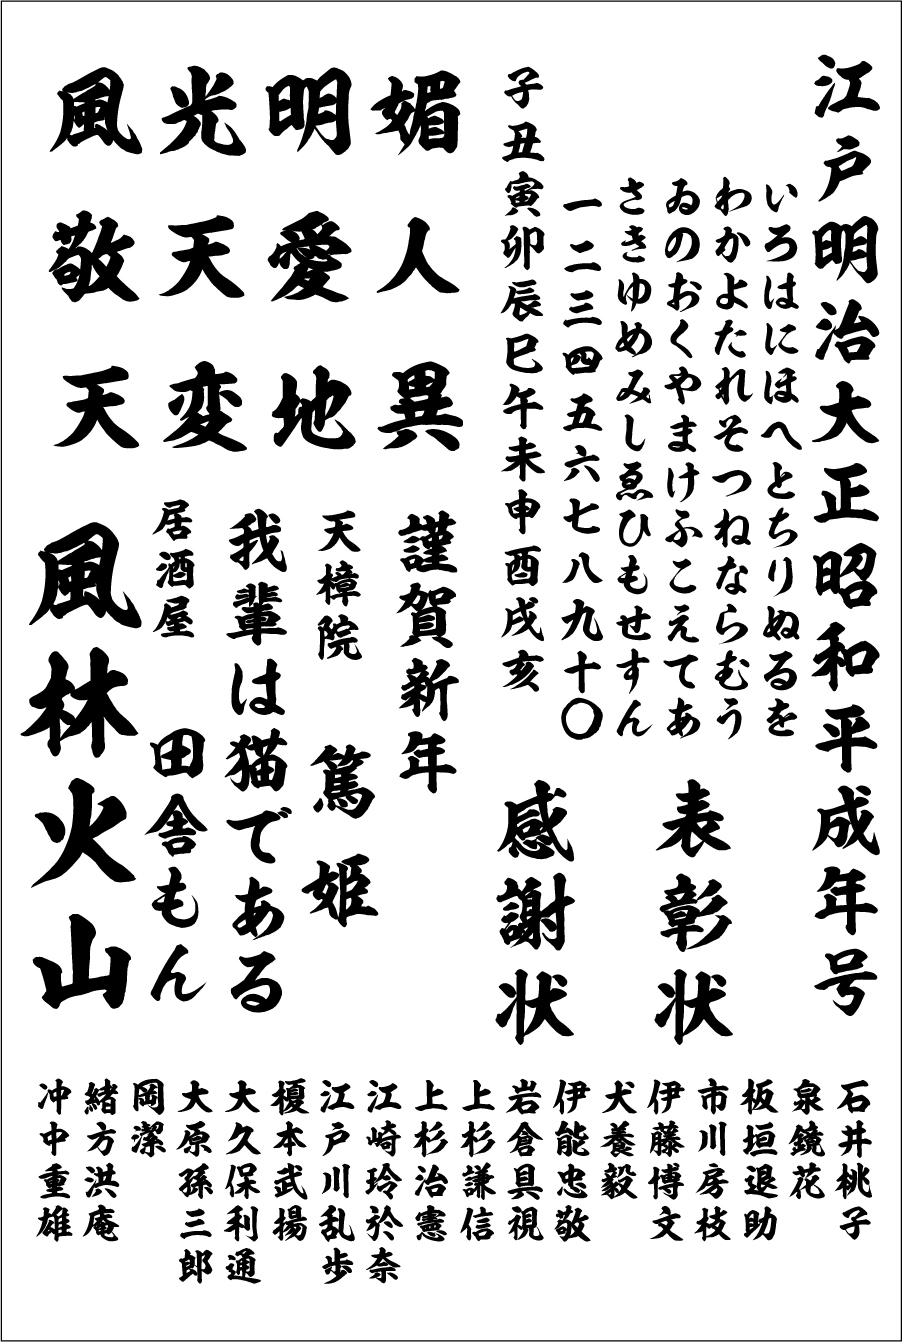 江戸明治大正昭和平成年号
いろはにほへとちりぬるを
わかよたれそつねならむう
ゐのおくやまけふこえてあ
さきゆめみしゑひもせすん
一二三四五六七八九十〇
子丑寅卯辰巳午未申酉戌亥
表彰状
感謝状
風光明媚
敬天愛人
天変地異
謹賀新年
天樟院 篤姫
我輩は猫である
居酒屋 田舎もん
風林火山
石井桃子
泉鏡花
板垣退助
市川房枝
伊藤博文
犬養毅
伊能忠敬
岩倉具視
上杉謙信
上杉治憲
江崎玲於奈
江戸川乱歩
榎本武揚
大久保利通
大原孫三郎
岡潔
緒方洪庵
冲中重雄